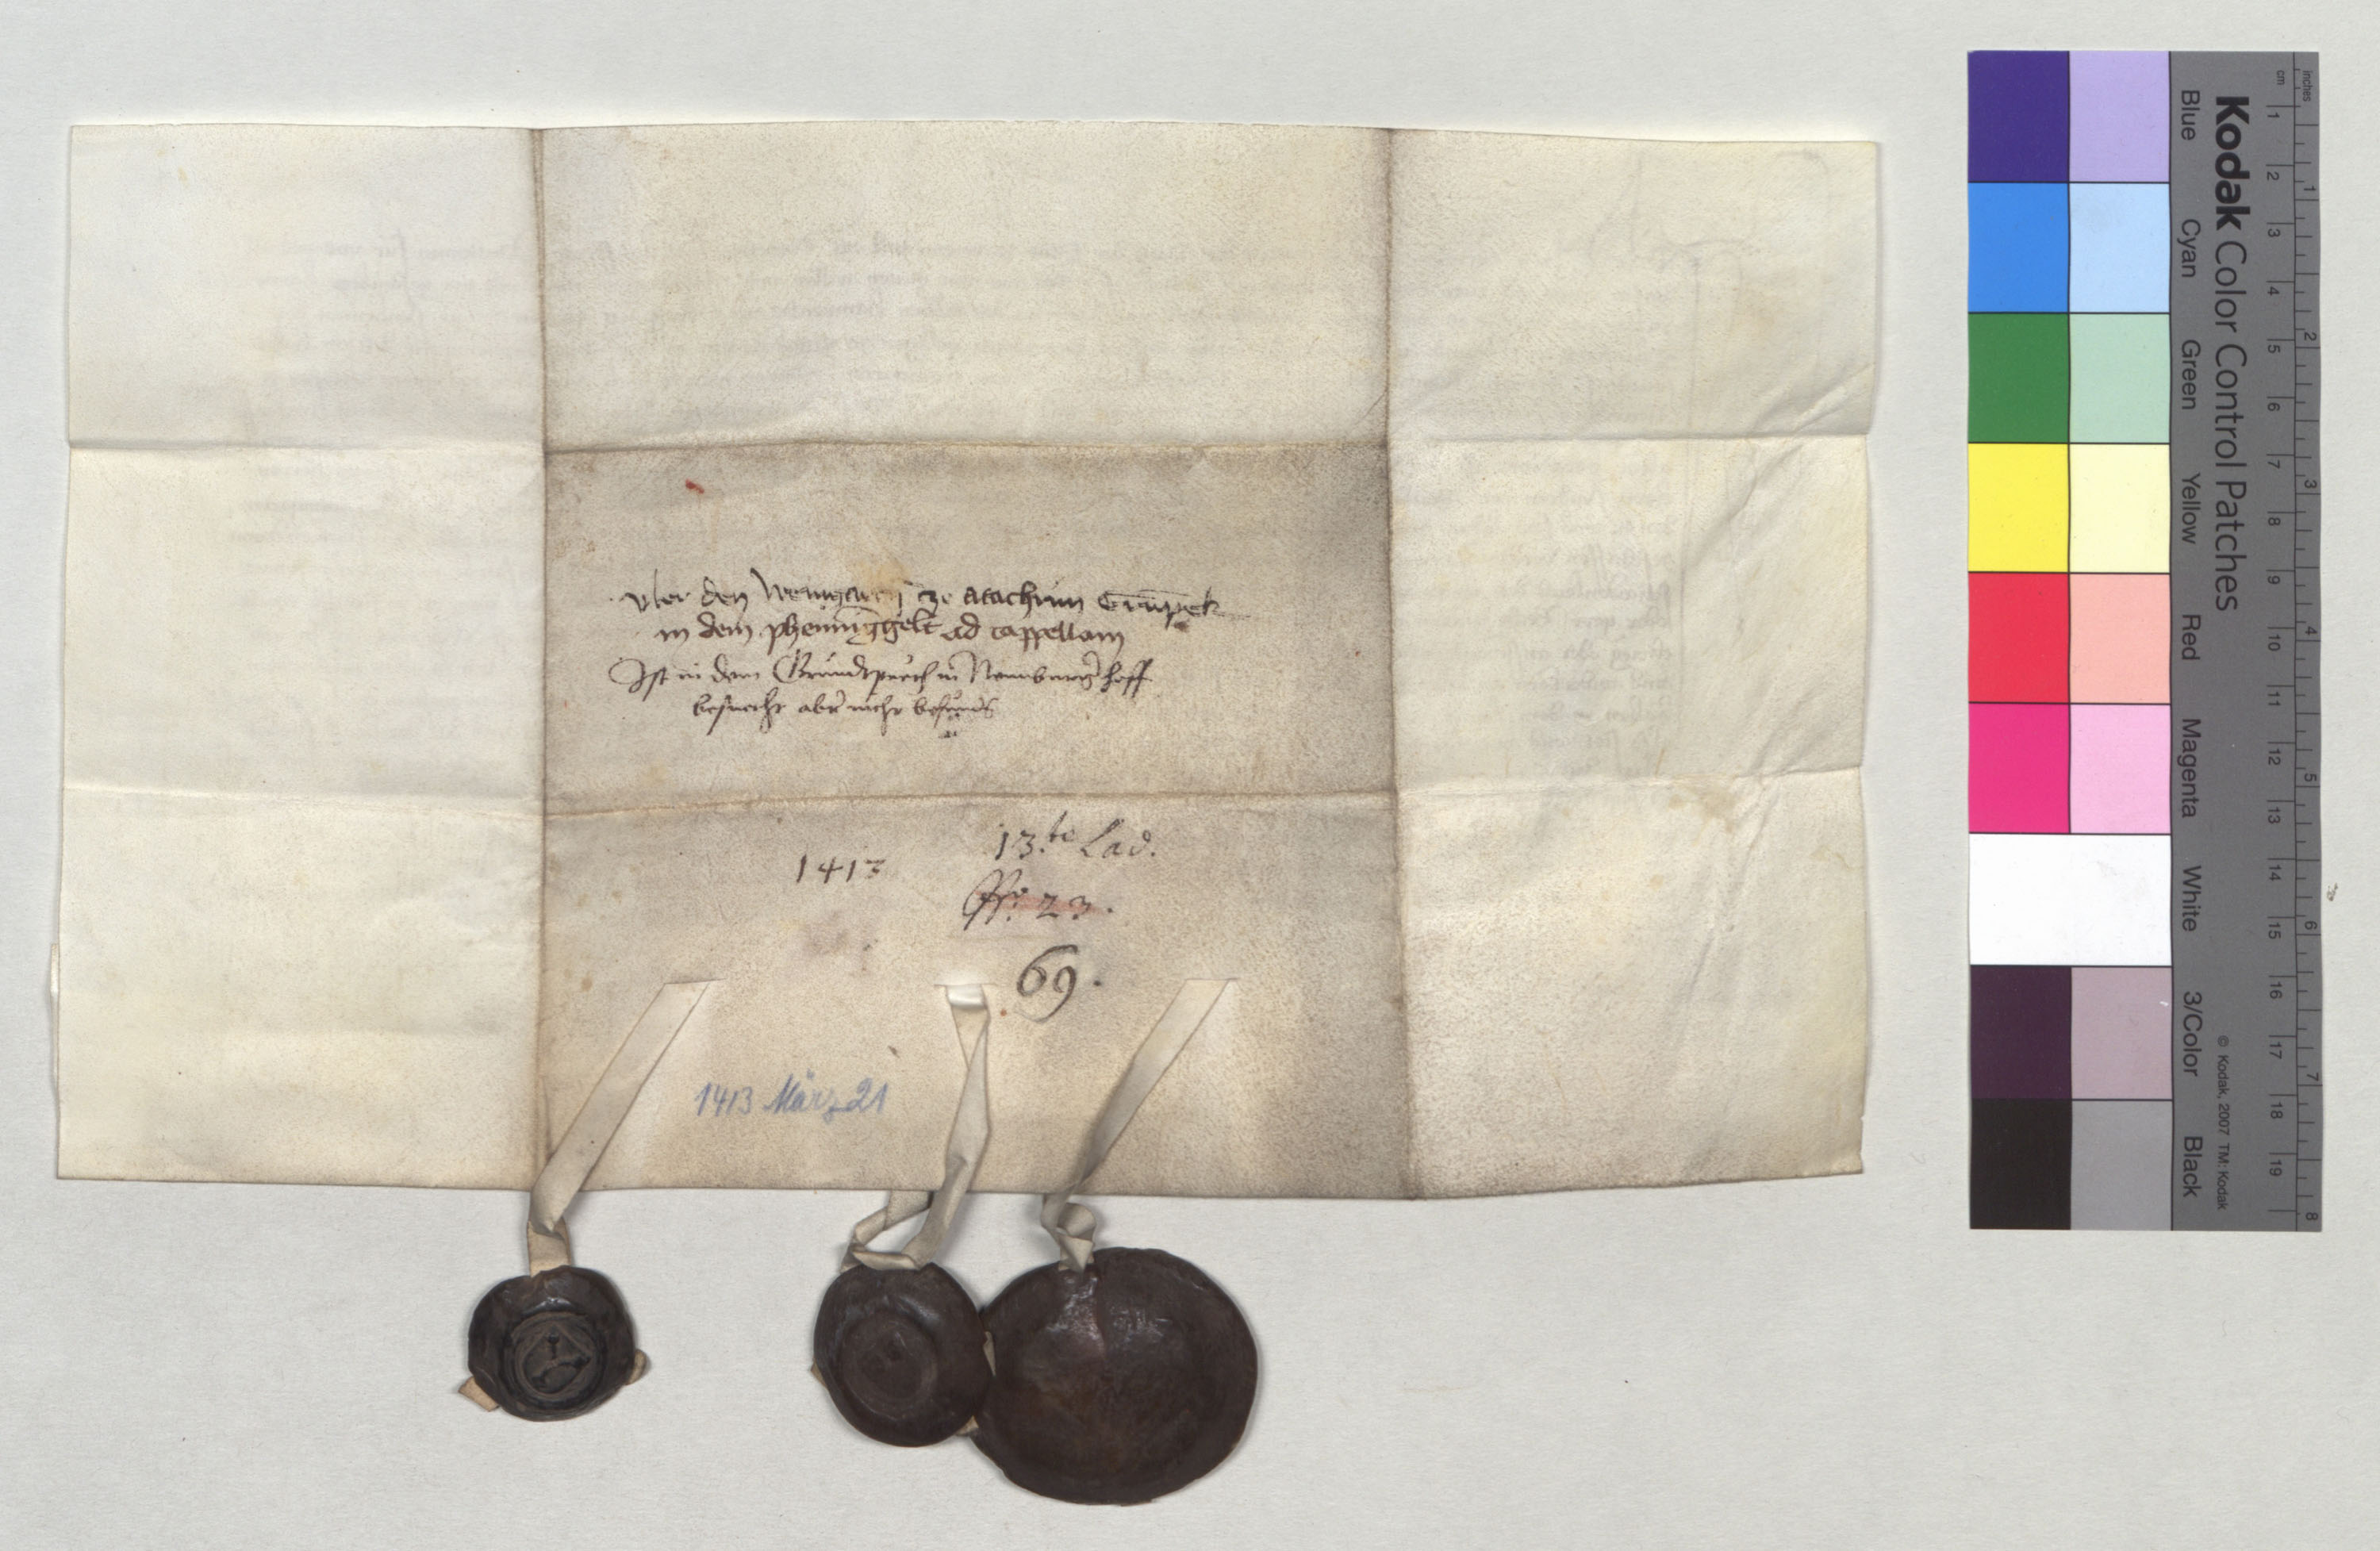 vber den Weingarten ze atachrim Crumpek
in dem phenninggelt ad cappellam
Ist in dem Grundtpuech in Neunburg hoff
besuecht aber nicht befunds
1413
13.te Lad.
N: 23.
69.
1413 März 21
Kodak Color Control Patches
Blue Cyan Green Yellow Red Magenta White 3/Color Black
© Kodak, 2007 TM: Kodak
cm 1 2 3 4 5 6 7 8 9 10 11 12 13 14 15 16 17 18 19
inches 1 2 3 4 5 6 7 8